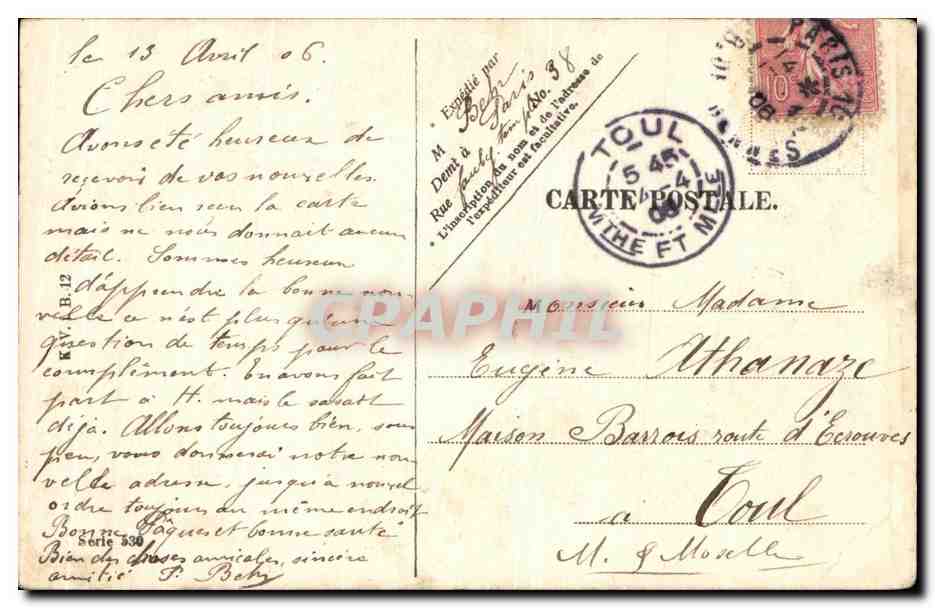 le 13 Avril 06.
Chers amis.
Avons été heureux de
recevoir de vos nouvelles
avions bien reçu la carte
mais ne nous donnait aucun
détail. Sommes heureux
d'apprendre la bonne nou-
velle ce n'est plus qu'une
question de temps pour le
complément. En avons fait
part à H. mais le savait
déjà. Allons toujours bien, sous
peu, vous donnerai notre nou
velle adresse, jusqu'à nouvel
ordre toujours au même endroit
Bonne Pâques et bonne santé
Bien des choses amicales, sincère
amitié P. Behr
K. V. B. 12
Série 530
Expédié par
M Behr
Demt à Paris
Rue No. 38
L'inscription du nom et de l'adresse de
l'expéditeur est facultative.
TOUL
5 45
15-4
06
MTHE ET MLE
PARIS
14
10
CARTE POSTALE.
CPAPHIL
Monsieur Madame
Eugène Athanaze
Maison Barrois route d'Ecrouves
à Toul
M. & Moselle